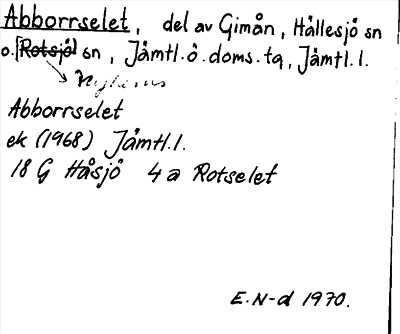 Abborrselet, del av Gimån, Hållesjö sn
o. [Rotsjö] sn, Jämtl. ö. doms. tg, Jämtl. l.
Nyhems
Abborrselet
ek (1968) Jämtl. l.
18 G Håsjö 4 a Rotselet
E. N-d 1970.